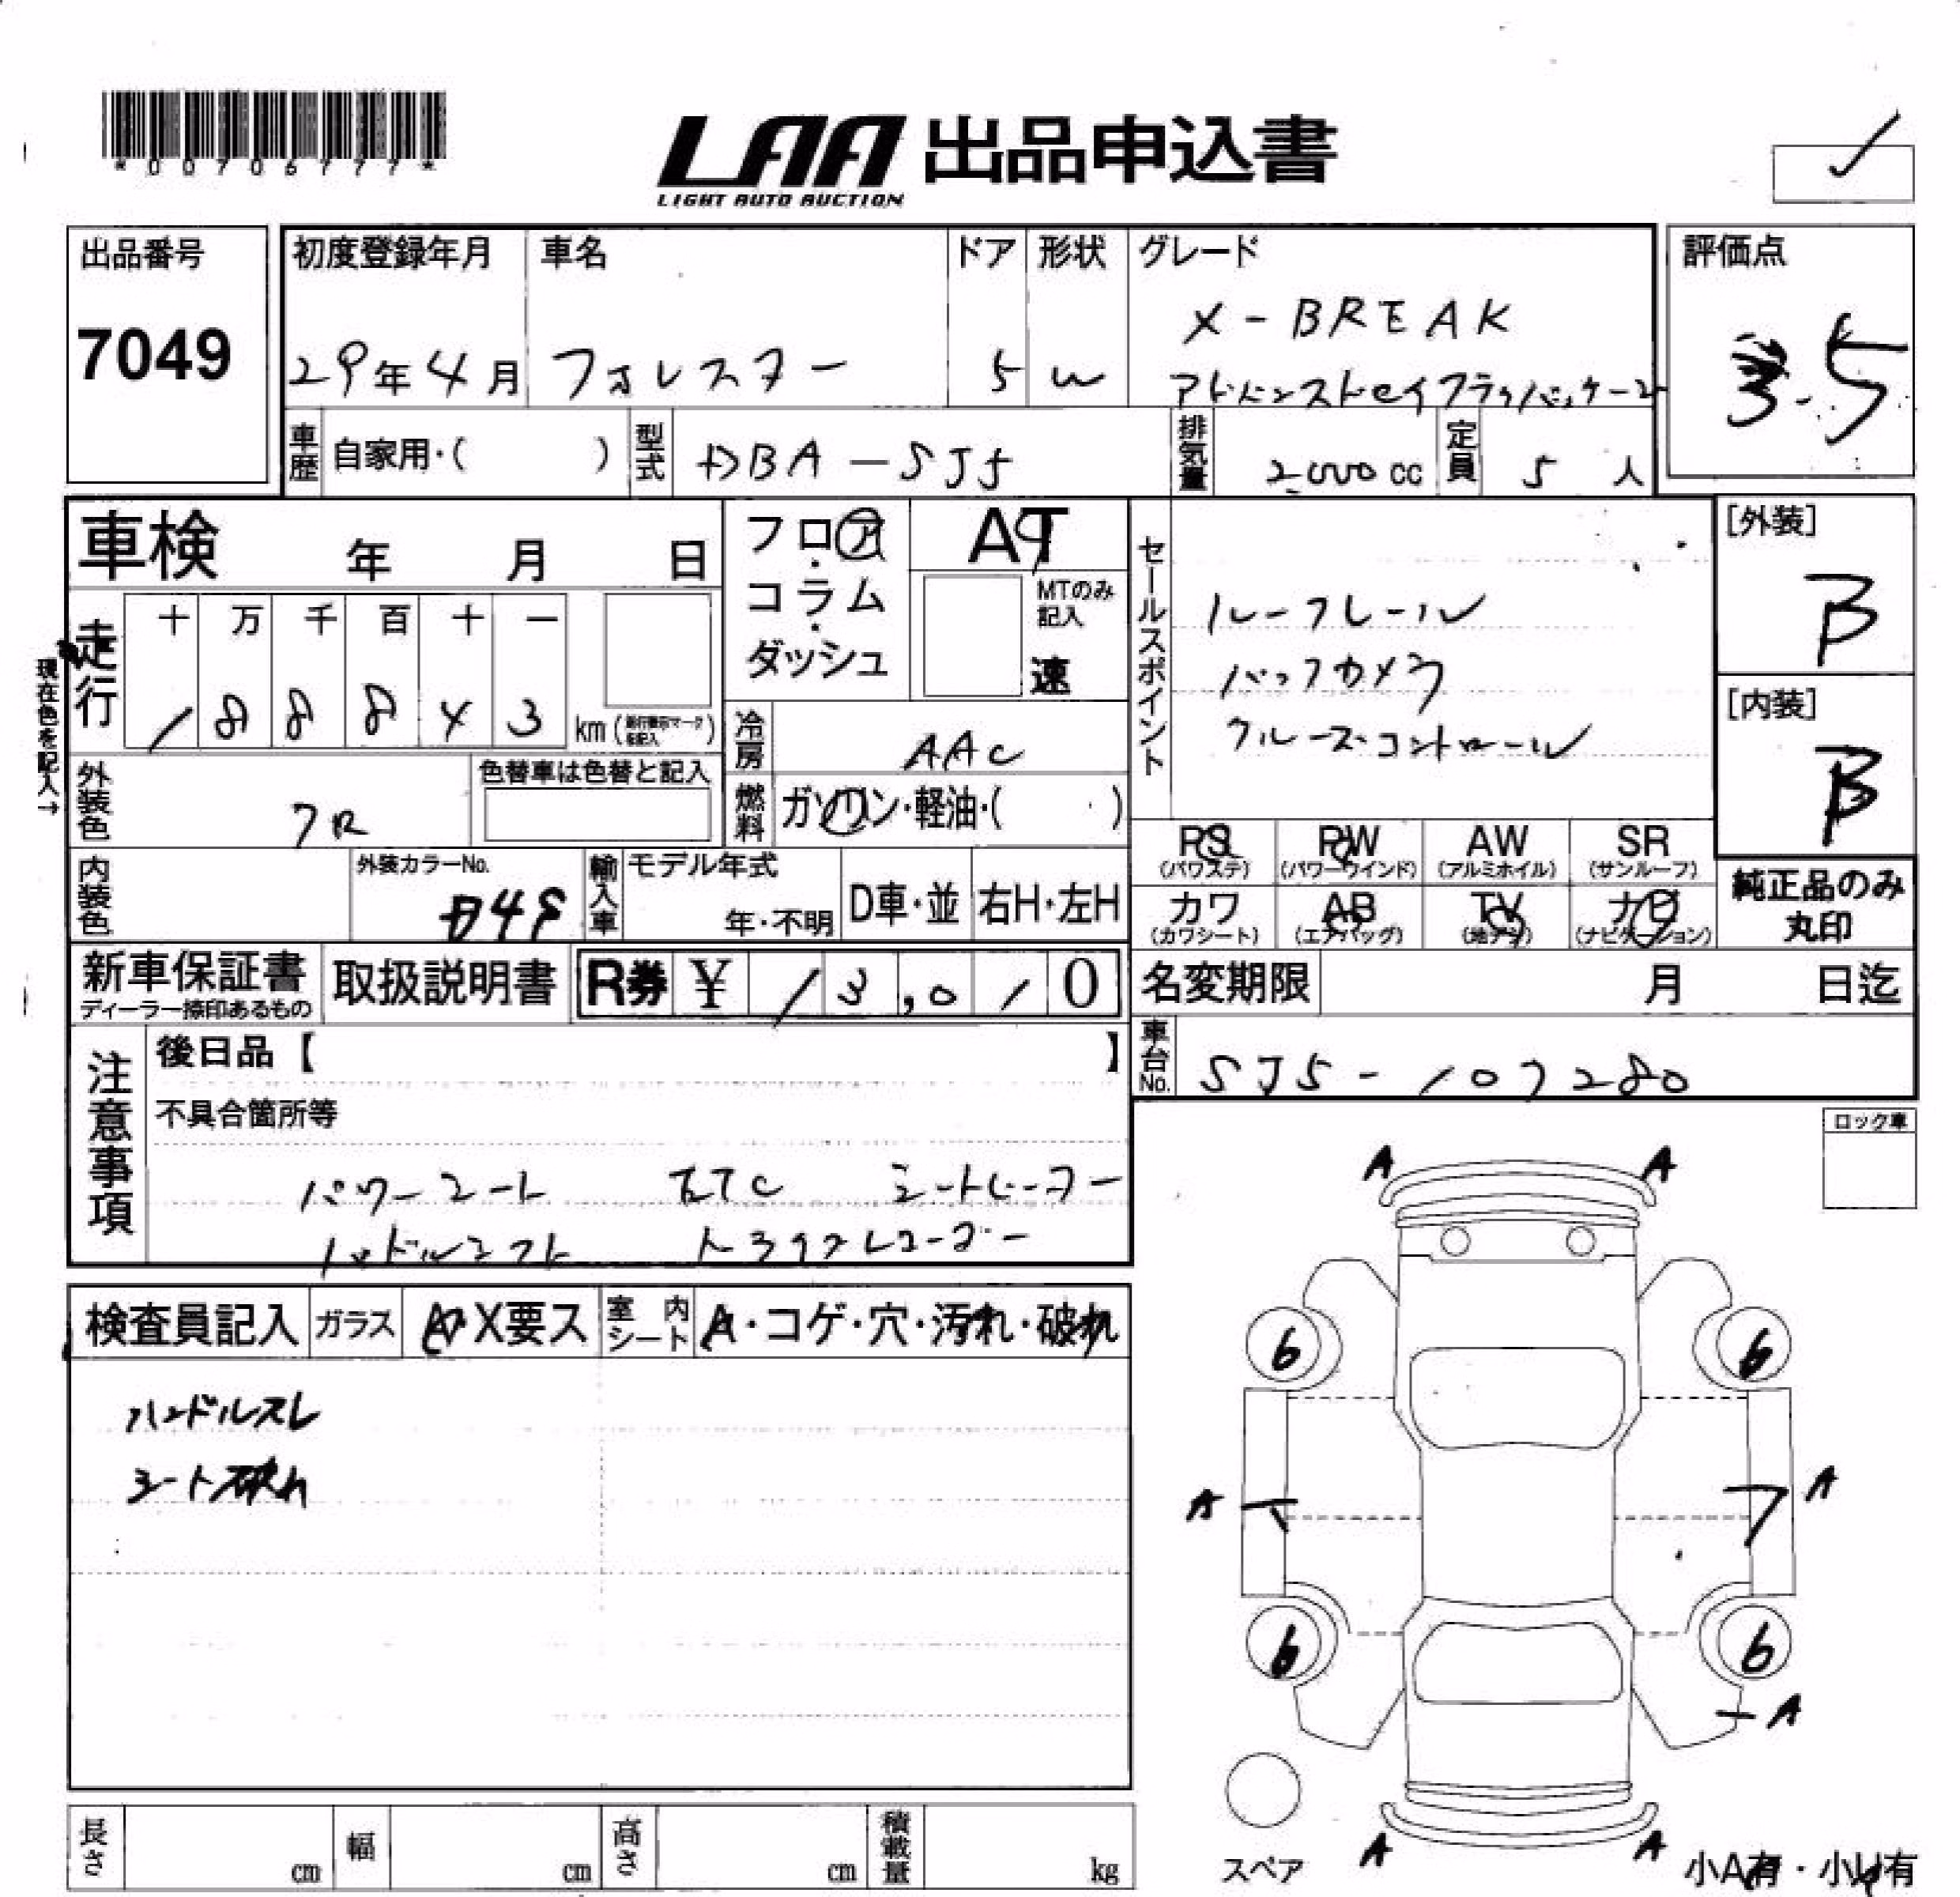 *00706777*
LAA 出品申込書
LIGHT AUTO AUCTION
出品番号
7049
初度登録年月 車名 ドア 形状 グレード
29年4月 フォレスター 5 W X-BREAK
アドバンスドセイフティパッケージ
評価点
3.5
車歴 自家用・( ) 型式 DBA-SJ5 排気量 2,000cc 定員 5人
車検 年 月 日
フロア・コラム・ダッシュ
AT
MTのみ記入
速
セールスポイント
ルーフレール
バックカメラ
クルーズコントロール
[外装]
B
[内装]
B
現在色を記入→
走行 十 万 千 百 十 一
1 8 8 8 4 3 km
冷房 AAC
外装色 色替車は色替と記入
燃料 ガソリン・軽油・( )
PS (パワステ) PW (パワーウインド) AW (アルミホイル) SR (サンルーフ)
カワ (カワシート) AB (エアバッグ) TV (地デジ) ナビ (ナビゲーション)
純正品のみ丸印
内装色 外装カラーNo. D4S
輸入車 モデル年式 年・不明 D車・並 右H・左H
新車保証書
ディーラー捺印あるもの
取扱説明書 R券 ¥ 13,010
名変期限 月 日迄
車台No. SJ5-107280
注意事項
後日品【 】
不具合箇所等
パワーシート ETC シートヒーター
パドルシフト ドラブレコーダー
ロック車
検査員記入 ガラス A・X要ス 室内シート A・コゲ・穴・汚れ・破れ
ハンドルスレ
シート破れ
A A
6 6
A A
6 6
A
A A
スペア
小A有・小U有
長さ cm 幅 cm 高さ cm 積載量 kg